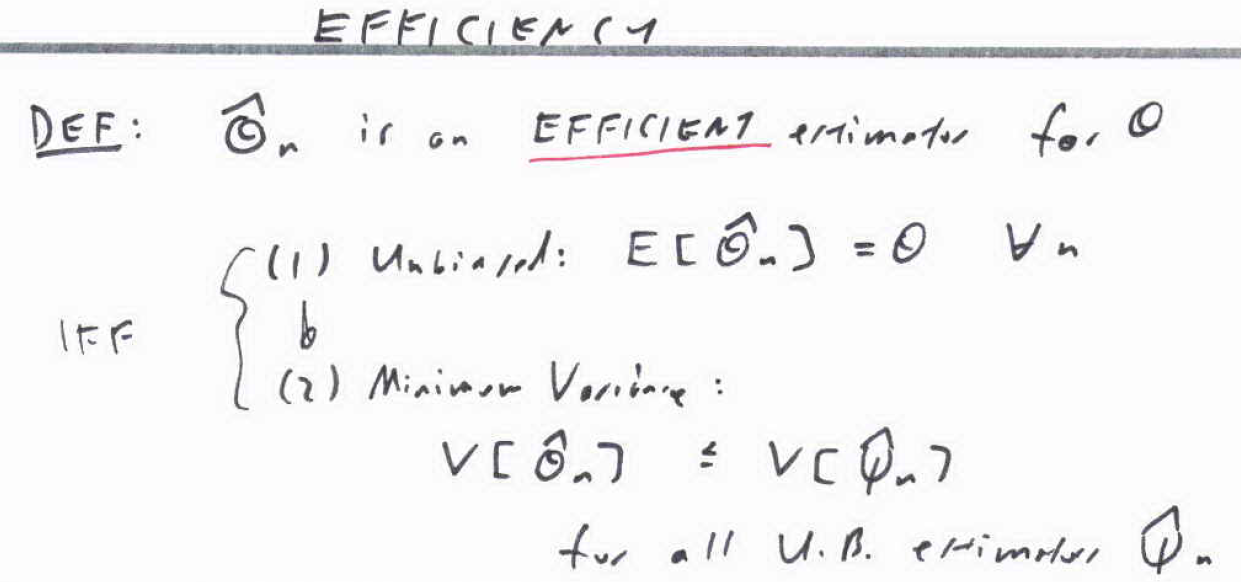 EFFICIENCY
DEF: Θ̂ₙ is an EFFICIENT estimator for Θ
(1) Unbiased: E[Θ̂ₙ] = Θ ∀n
IFF &
(2) Minimum Variance:
V[Θ̂ₙ] ≤ V[φ̂ₙ]
for all U.B. estimators φ̂ₙ